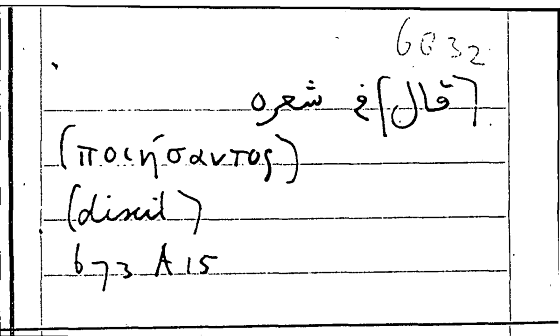 6032
[قال] في شعره
(ποιήσαντος)
(dixit)
673 A 15